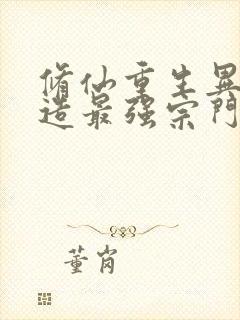 修仙重生異
造最强宗門
董肖